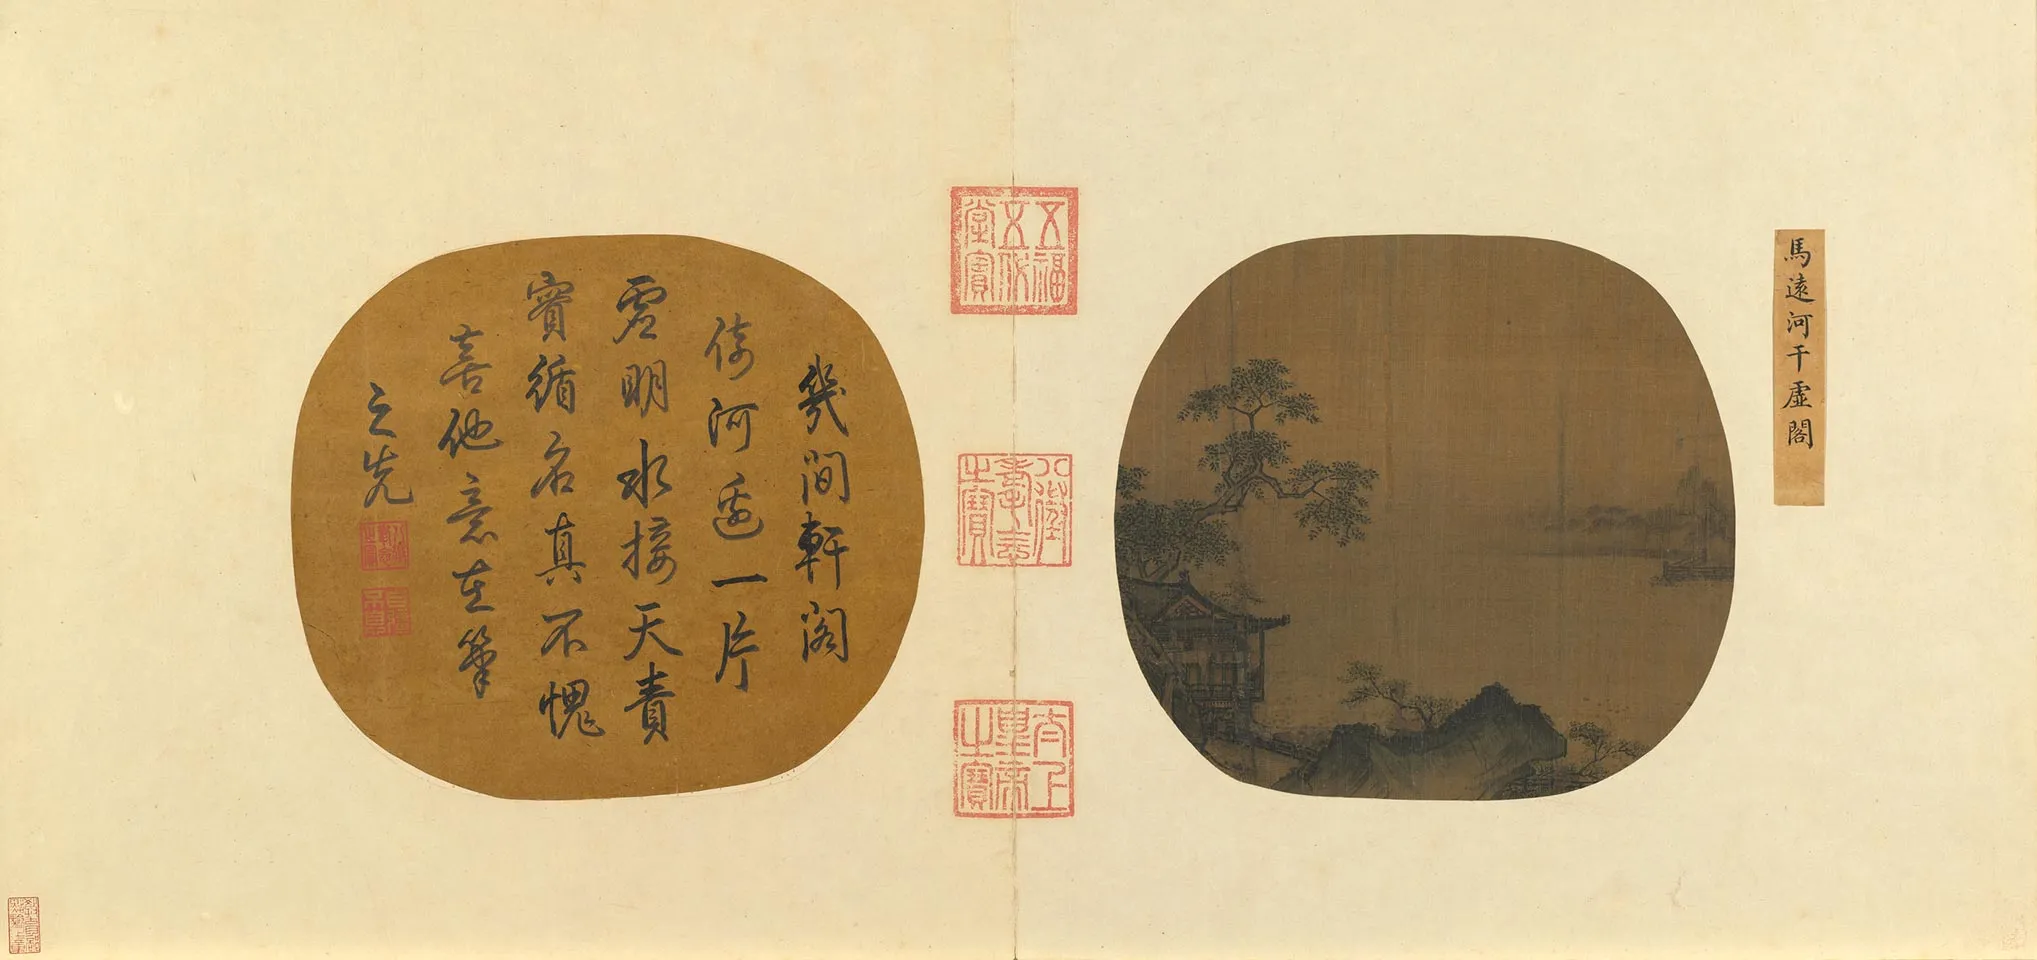 馬遠河干虛閣
五福
五代
堂寶
八徵
耄念
之寶
太上
皇帝
之寶
幾間軒閣
倚河邊一片
虛明水接天責
實循名真不愧
喜他意在筆
之先